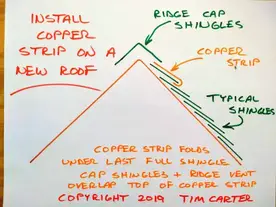 INSTALL
COPPER
STRIP ON A
NEW ROOF
RIDGE CAP
SHINGLES
COPPER
STRIP
TYPICAL
SHINGLES
COPPER STRIP FOLDS
UNDER LAST FULL SHINGLE
CAP SHINGLES + RIDGE VENT
OVERLAP TOP OF COPPER STRIP
COPYRIGHT 2019 TIM CARTER